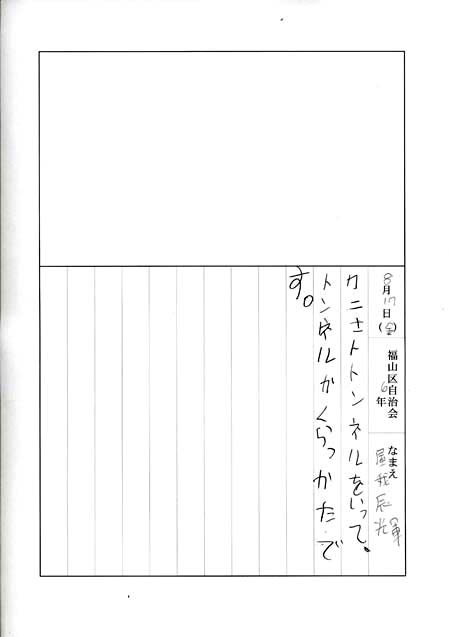 8月17日(金) 福山区自治会 6年 なまえ 屋我辰光軍
カニさトトンネルをいって。
トンネルがくらっかたで
す。